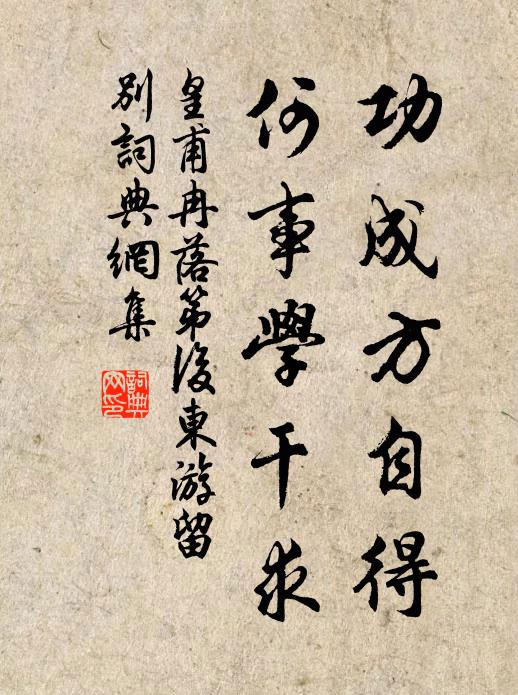 功成方自得
何事學干求
皇甫冉落第後東游留
別詞典網集
詞典
网印